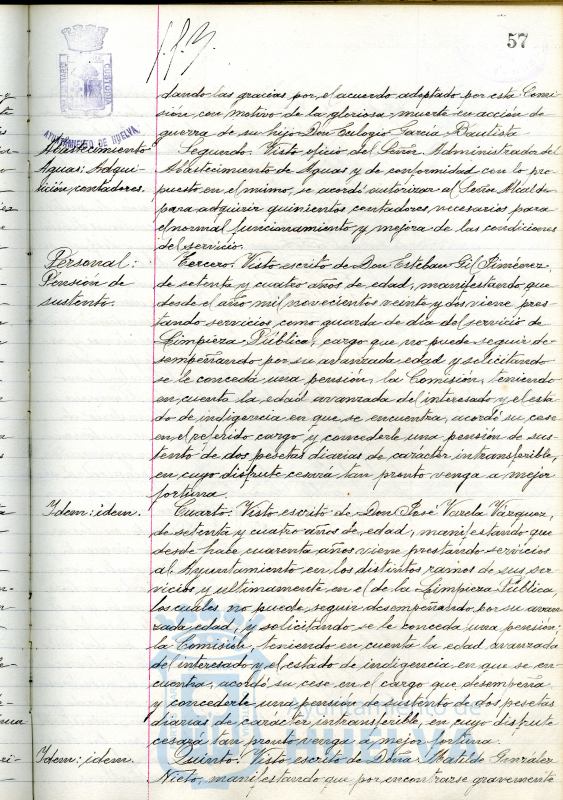 57
AYUNTAMIENTO DE HUELVA
dando las gracias por el acuerdo adoptado por esta Comi-
sión, con motivo de la gloriosa muerte en acción de
guerra de su hijo Don Eulogio García Bautista.
Abastecimiento
Aguas: Adqui-
sición, contadores.
Segundo. Visto oficio del Señor Administrador del
Abastecimiento de Aguas y de conformidad con lo pro-
puesto en el mismo, se acordó autorizar al Señor Alcalde
para adquirir quinientos contadores, necesarios para
el normal funcionamiento y mejora de las condiciones
del servicio.
Personal:
Pensión de
sustento.
Tercero. Visto escrito de Don Esteban Gil Jiménez,
de setenta y cuatro años de edad, manifestando que
desde el año mil novecientos veinte y dos viene pres-
tando servicios como guarda de día del servicio de
Limpieza Pública, cargo que no puede seguir de-
sempeñando por su avanzada edad y solicitando
se le conceda una pensión, la Comisión, teniendo
en cuenta la edad avanzada del interesado y el esta-
do de indigencia en que se encuentra, acordó su cese
en el referido cargo y concederle una pensión de sus-
tento de dos pesetas diarias de caracter intransferible,
en cuyo disfrute cesará tan pronto venga a mejor
fortuna.
Idem: idem.
Cuarto. Visto escrito de Don José Varela Vázquez,
de setenta y cuatro años de edad, manifestando que
desde hace cuarenta años viene prestando servicios
al Ayuntamiento en los distintos ramos de sus ser-
vicios y ultimamente en el de la Limpieza Pública,
los cuales no puede seguir desempeñando por su avan-
zada edad, y solicitando se le conceda una pensión,
la Comisión, teniendo en cuenta la edad avanzada
del interesado y el estado de indigencia en que se en-
cuentra, acordó su cese en el cargo que desempeña
y concederle una pensión de sustento de dos pesetas
diarias de caracter intransferible, en cuyo disfrute
cesará tan pronto venga a mejor fortuna.
Idem: idem.
Quinto. Visto escrito de Doña Matilde González
Nieto, manifestando que por encontrarse gravemente
Ayuntamiento de
HUELVA